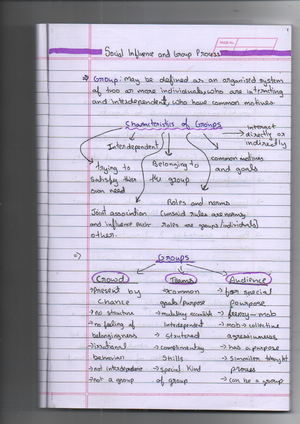 Social Influence and Group Process
Group: May be defined as an organised system
of two or more individuals, who are intracting
and interdependent, who have common motives.
Characteristics of Groups
interact
directly or
indirectly
Interdependent
trying to
satisfy their
own need
Belonging to
the group
common motives
and goals
Roles and norms
Joint association (unsaid rules are norms,
and influence each roles are groups/individuals)
other.
Groups
Crowd
present by
chance
no structure
no feeling of
belongingness
irrational
behaviour
not interdependent
not a group
Teams
common
goals/purpose
Interdependent
Structured
complimentry
Skills
special kind
of group
Audience
for special
pourpose
mob → collective
agressiveness
has a purpose
thought
proces
can be a group